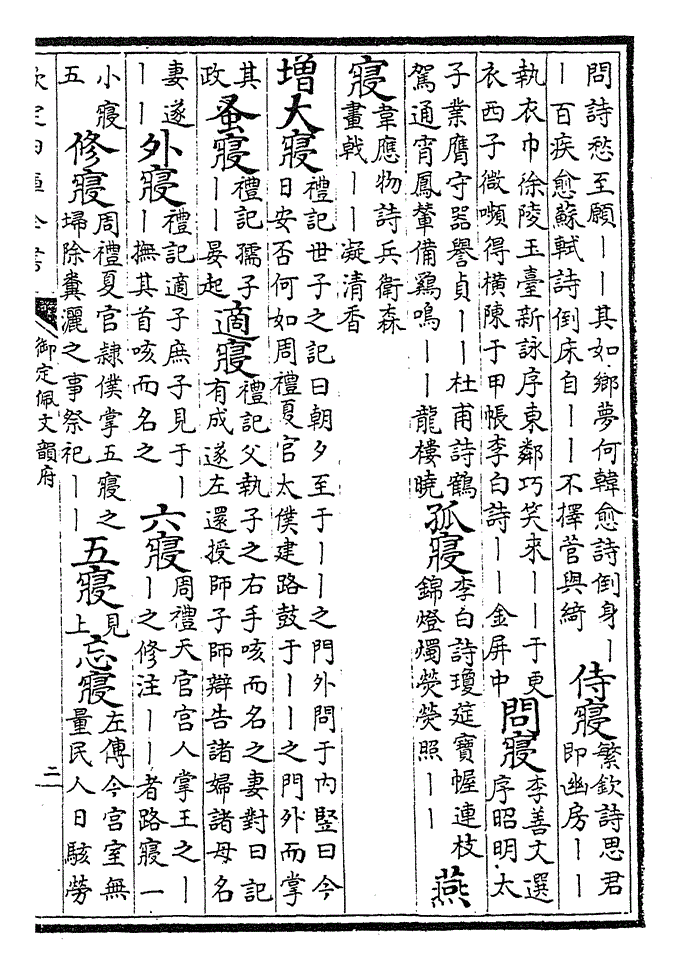 問詩愁至願丨丨其如鄉夢何韓愈詩倒身丨
丨百疾愈蘇軾詩倒床自丨丨不擇菅與綺
侍寢
繁欽詩思君
即幽房丨丨
執衣巾徐陵玉臺新詠序東鄰巧笑來丨丨于更
衣西子微嚬得橫陳于甲帳李白詩丨丨金屏中
問寢
李善文選
序昭明太
子業膺守器譽貞丨丨杜甫詩鶴
駕通宵鳳輦備鷄鳴丨丨龍樓曉
孤寢
李白詩瓊筵寶幄連枝
錦燈燭熒熒照丨丨
燕
寢
韋應物詩兵衛森
畫戟丨丨凝清香
增大寢
禮記世子之記曰朝夕至于丨丨之門外問于內豎曰今
日安否何如周禮夏官太僕建路鼓于丨丨之門外而掌
其
政
蚤寢
禮記孺子
丨丨晏起
適寢
禮記父執子之右手咳而名之妻對曰記
有成遂左還授師子師辯告諸婦諸母名
妻遂
丨丨
外寢
禮記適子庶子見于丨
丨撫其首咳而名之
六寢
周禮天官宮人掌王之丨
丨之修注丨丨者路寢一
小寢
五
修寢
周禮夏官隸僕掌五寢之
埽除糞灑之事祭祀丨丨
五寢
見
上
忘寢
左傳今宮室無
量民人日駭勞
欽定四庫全書
御定佩文韻府
二